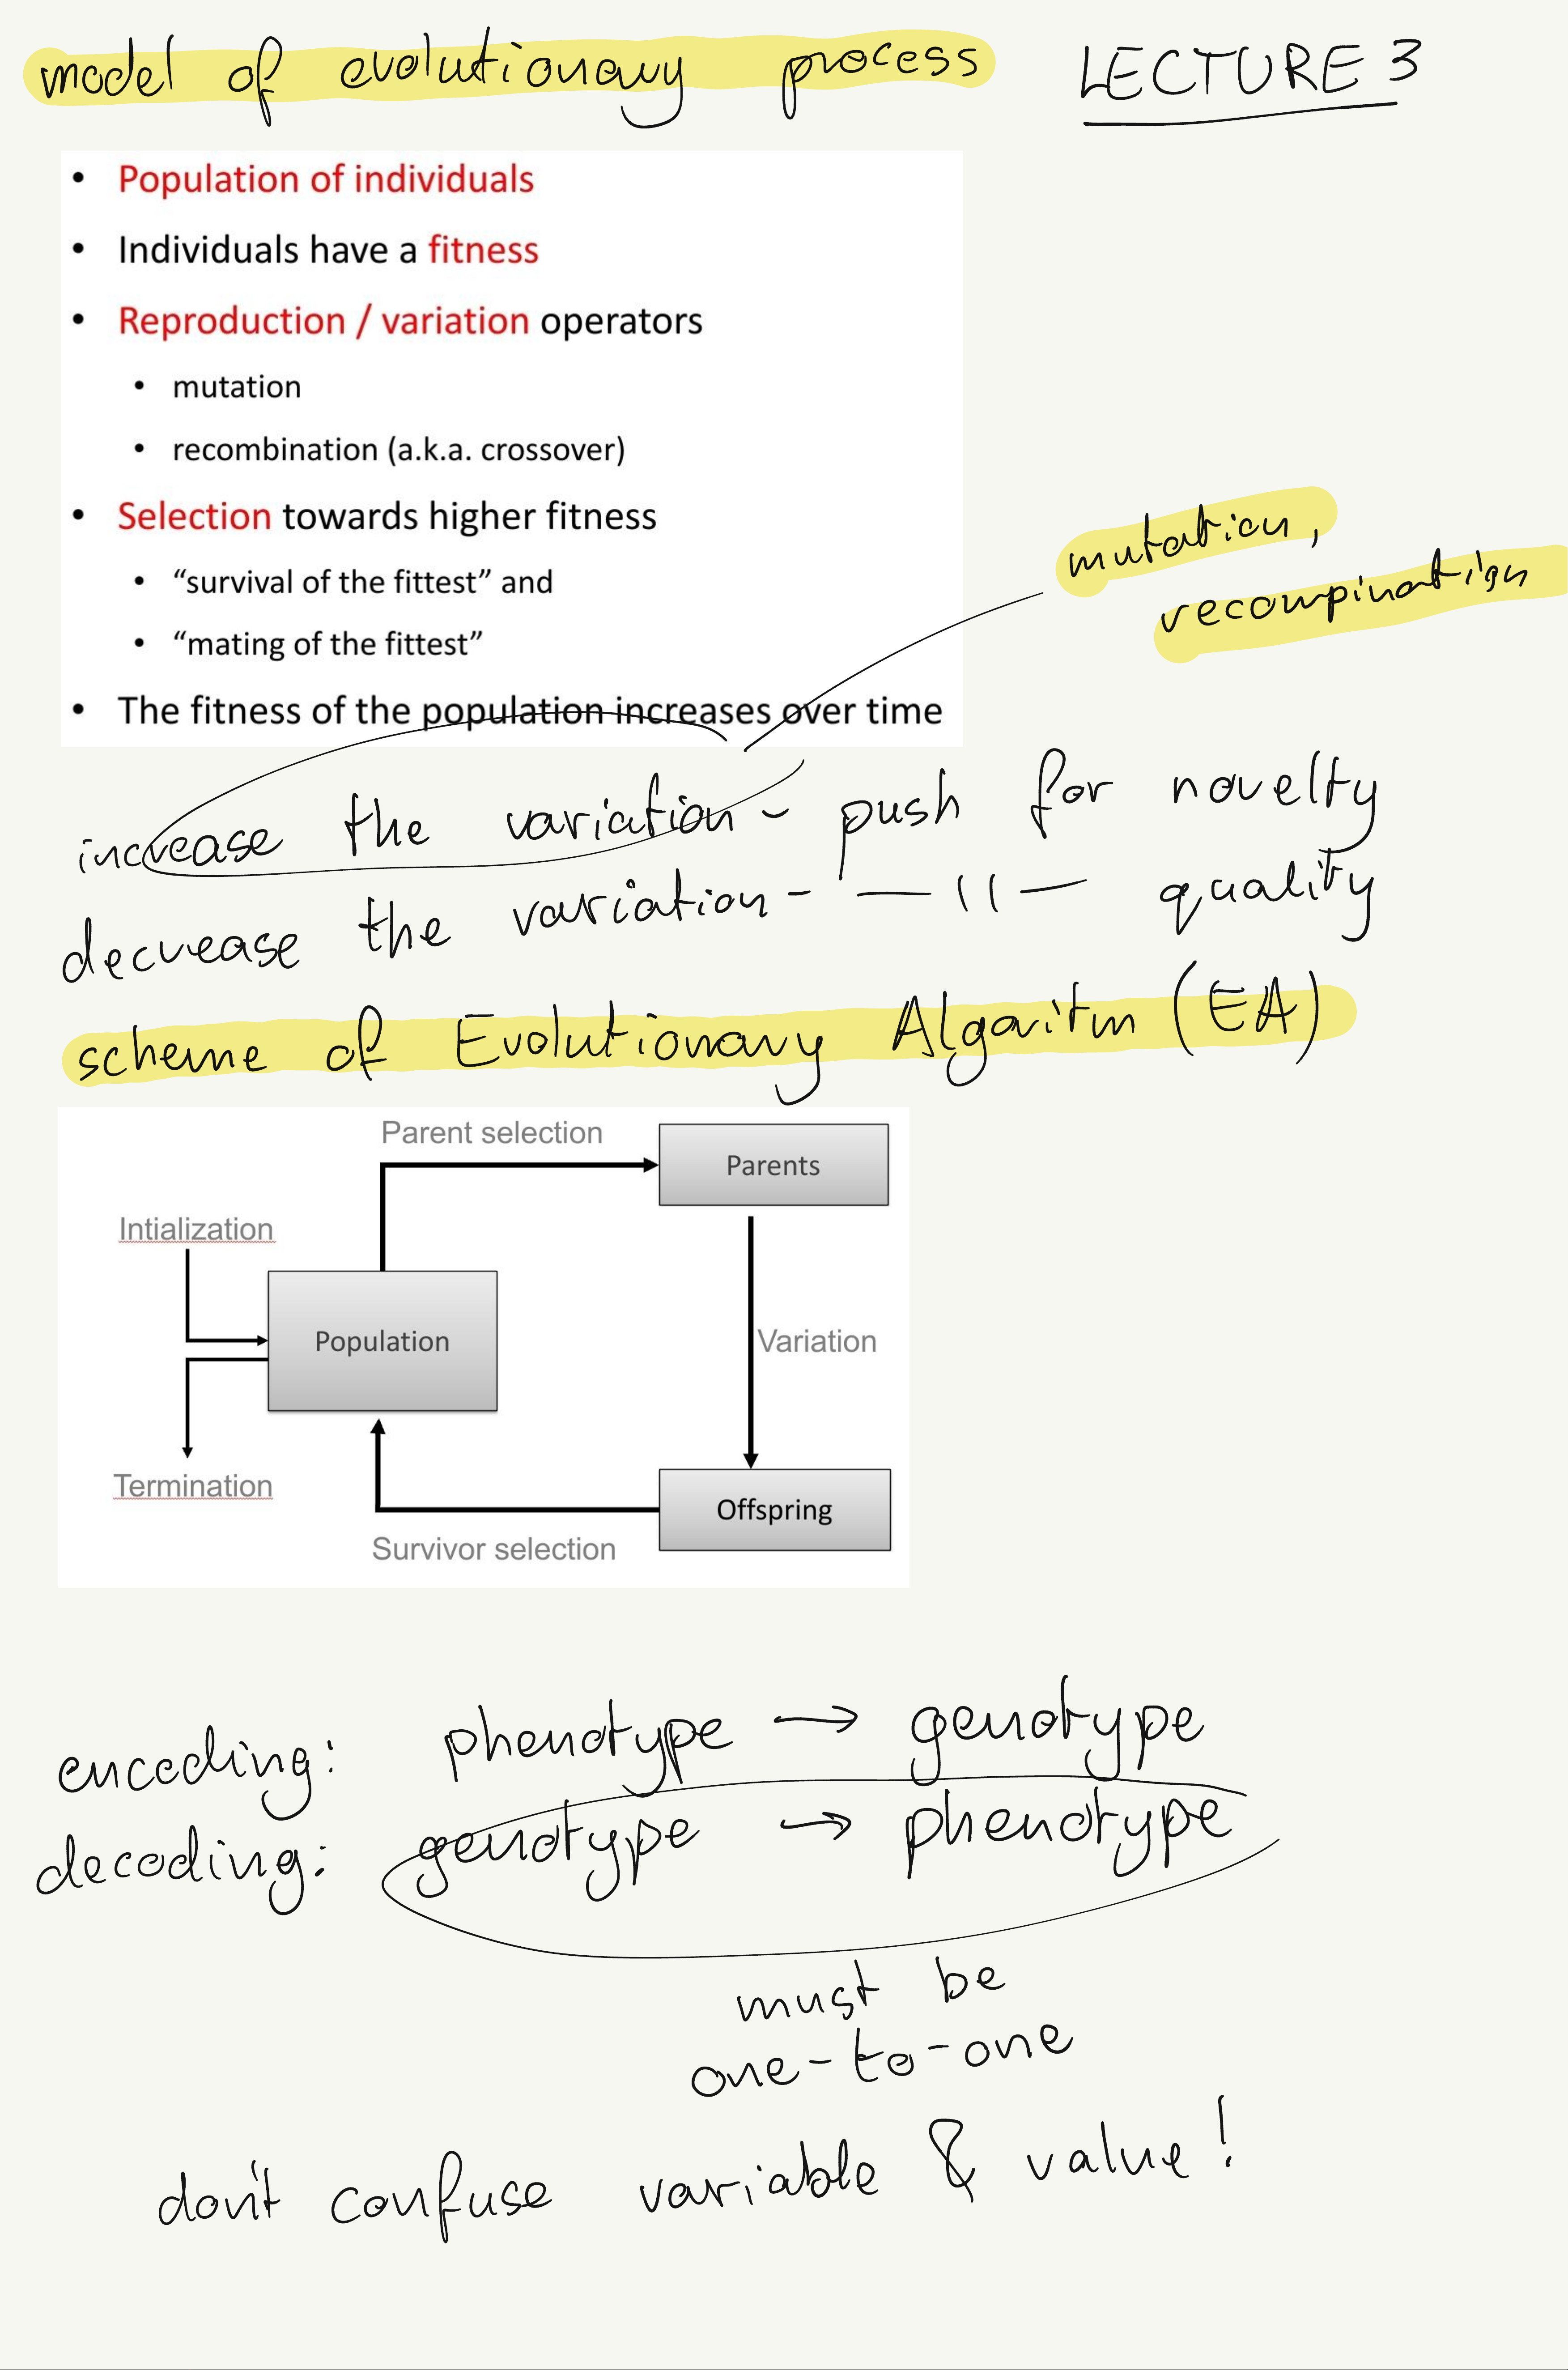 model of evolutionary process LECTURE 3
• Population of individuals
• Individuals have a fitness
• Reproduction / variation operators
• mutation
• recombination (a.k.a. crossover)
• Selection towards higher fitness
• “survival of the fittest” and
• “mating of the fittest”
• The fitness of the population increases over time
mutation,
recompination
increase the variation - push for novelty
decrease the variation - — 11 — quality
scheme of Evolutionary Algoritm (EA)
Parent selection
Parents
Intialization
Population
Variation
Termination
Offspring
Survivor selection
encoding: phenotype → genotype
decoding: genotype → phenotype
must be
one-to-one
don't confuse variable & value!